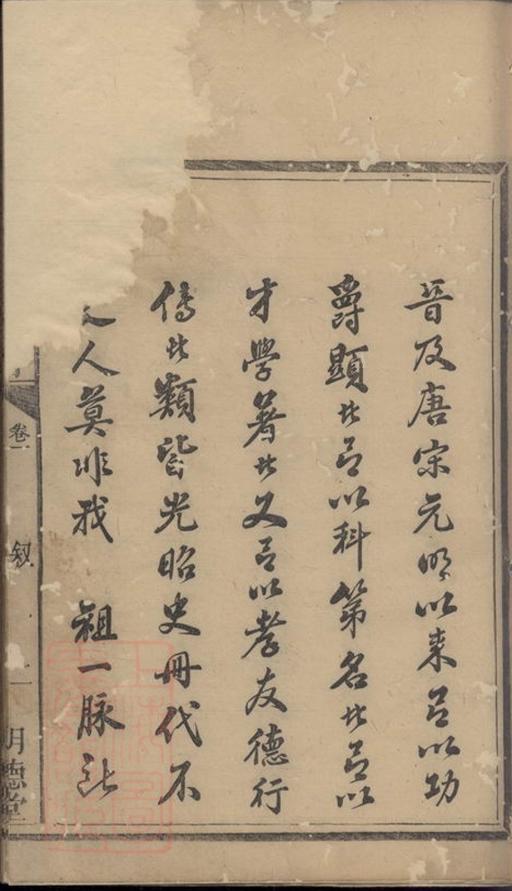 晉及唐宋元明以來有以功
爵顯者有以科第名者有以
才學著者又有以孝友德行
傳者類皆光昭史冊代不
人莫非我 祖一脉
卷一 叙 一 明德堂